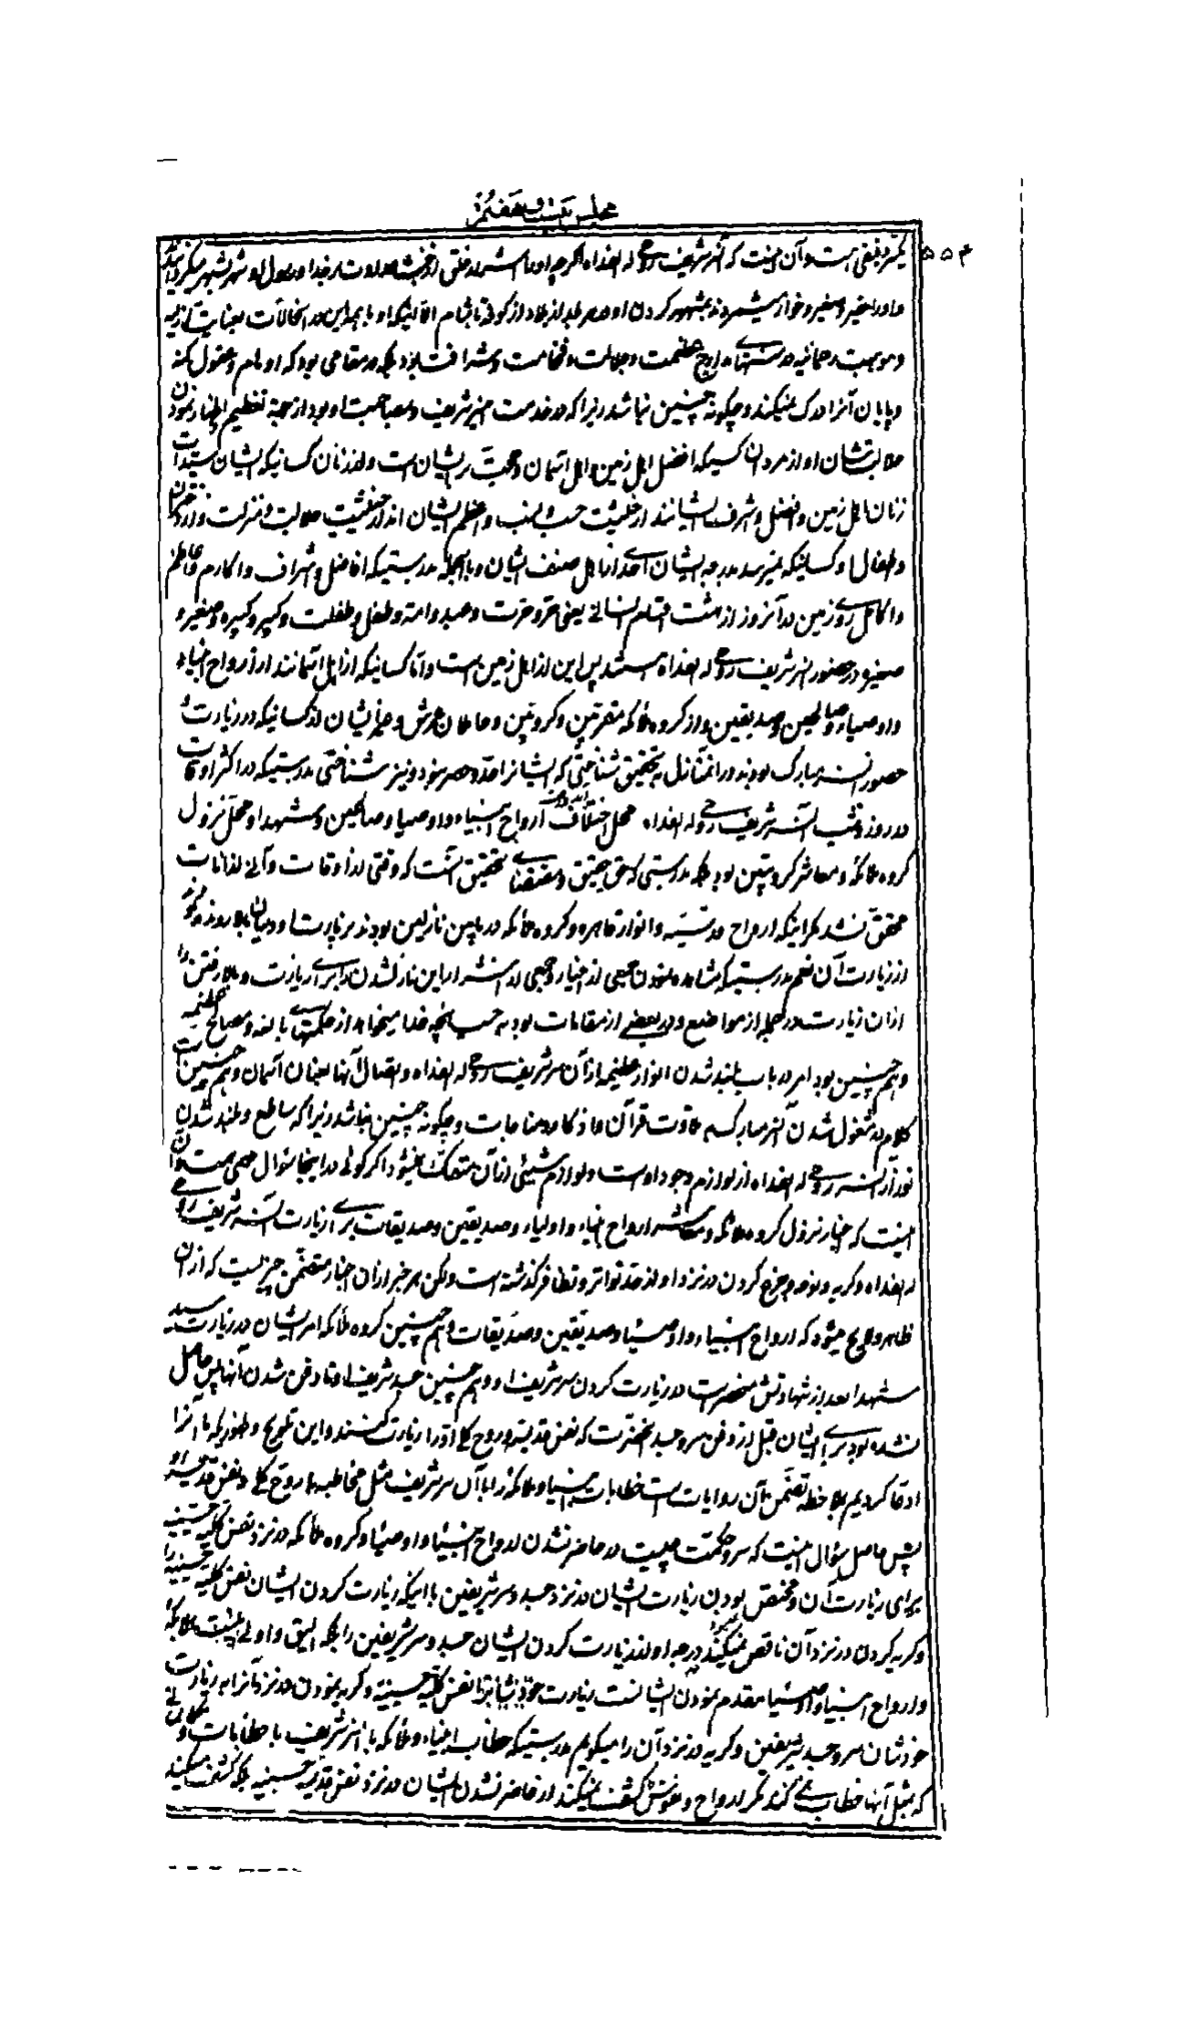 مجلس بیست و هفتم
۵۵۴
است و آن اینست که سر شریف روحی له الفداه اگرچه او را
و او را حقیر و صغیر و خوار میشمردند بشهر کردن او در هر بلد از بلاد از کوفه تا شام اما اینکه او با همه این در اینحالات بعنایات
و موهبت رحمانیه در منتهای مدارج عظمت و جلالت و فخامت و شرافت بود بلکه در مقامی بود که اوهام و عقول کنه
و پایان آنرا درک نمیکند و چگونه چنین نباشد زیرا که در خدمت سر شریف و مصاحبت او بود از جهة تعظیم و اظهار نمودن
جلالت شان او از مردان کسیکه افضل اهل زمین و اهل آسمان و حجت بر ایشان است و از زنان کسانیکه ایشان سیدات
زنان اهل زمین و افضل و اشرف ایشانند از حیثیت حسب و نسب و اعظم ایشان اند از حیثیت جلالت و منزلت و از دختران
و اطفال و کسانیکه نمیرسد بدرجه ایشان احدی از اهل صنف ایشان و بالجمله بدرستیکه افاضل و اشراف و اکارم و اعاظم
و اکامل روی زمین در آنروز از هشت اقسام انسانی یعنی حر و حرت و عبد و امة و طفل و طفلت و کبیر و کبیره و صغیر و
صغیره در حضور سر شریف روحی له الفداه هستند پس این از اهل زمین است و اما کسانیکه از اهل آسمانند از ارواح انبیاء
و اوصیاء و صالحین و صدیقین و از گروه ملائکه مقربین و کروبین و حاملان عرش و غیر ایشان از کسانیکه در زیارت
حضور سر مبارک بودند در انمنازل به تحقیق شناختی که ایشانرا حد و حصر نبود و نیز شناختی بدرستیکه در اکثر اوقات
در روز و شب آن سر شریف روحی له الفداه محل اختلاف ارواح انبیاء و اوصیاء و صالحین و شهدا و محل نزول
گروه ملائکه و معاشر کروبین بود بلکه بدرستی که حق حقیق و مقتضای تحقیق آنست که وقتی از اوقات و آنی از آنات
محقق نشد مگر اینکه ارواح قدسیه و انوار قاهره و گروه ملائکه در مابین نازلین بودند بزیارت او و میان بالا روندگان
از زیارت آن نعم بدرستیکه مشاهد نمودن جمعی از اخیار و جمعی از اشرار این نازلشدن را برای زیارت و بالا رفتن را
از آن زیارت در جمله از مواضع و در بعضی از مقامات بود به حسب آنچه خدا میخواهد از حکمتهای بالغه و مصالح عظیمه
و هم چنین بود امر در باب بلند شدن انوار عظیمه از آن سر شریف روحی له الفداه و اتصال آنها بعنان آسمان و هم چنین است
کلام در مشغول شدن آن سر مبارک به تلاوت قرآن و اذکار و مناجات و چگونه چنین نباشد زیرا که ساطع و بلند شدن
نور از آن سر روحی له الفداه از لوازم وجود او است و لوازم شیئی از آن منفک نمیشود اگر گوئی در اینجا سؤال مهمی هست و آن
اینست که اخبار نزول گروه ملائکه و معاشر ارواح انبیاء و اولیاء و صدیقین و صدیقات برای زیارت آن سر شریف روحی
له الفداه و گریه و نوحه و جزع کردن در نزد او از حد تواتر و تظافر گذشته است و لکن هر خبر از آن اخبار متضمن چیزیست که از آن
ظاهر و لایح میشود که ارواح انبیاء و اوصیاء و صدیقین و صدیقات و هم چنین گروه ملائکه امر ایشان در زیارت سید
شهدا بعد از شهادتش منحصر است در زیارت کردن سر شریف او و هم چنین جسد شریف او تا دفن شدن آنها پس حاصل
نشده بود برای ایشان قبل از دفن سر و جسد آنحضرت که نفس قدسیه و روح کلی او را زیارت کنند و این تلویح و ظهور که ما آنرا
ادعا کردیم بملاحظه تضمن آن روایات است خطابات انبیاء و ملائکه را با آن سر شریف مثل مخاطبه با روح کلی و نفس قدسیه او
پس حاصل سؤال اینست که سر و حکمت چیست در حاضر نشدن ارواح انبیاء و اوصیاء و گروه ملائکه در نزد نفس کلیه حسینیه
برای زیارت آن و مختص بودن زیارت ایشان در نزد جسد و سر شریفین با اینکه زیارت کردن ایشان نفس کلیه حسینیه را
و گریه کردن در نزد آن ناقص نمیکند درجه او از زیارت کردن ایشان جسد و سر شریفین را بلکه الیق و اولی
و ارواح انبیاء و اوصیاء مقدم نمودن ایشانست زیارت نفس کلیه حسینیه و گریه نمودن در نزد آنرا به زیارت
خودشان سر و جسد شریفین و گریه در نزد آن را میگویم بدرستیکه خطاب انبیاء و ملائکه با سر شریف با خطابات
که بمثل آنها خطاب نمی کنند مگر ارواح و نفوس کشف نمیکند از حاضر نشدن ایشان در نزد نفس قدسیه حسینیه بلکه کشف میکند